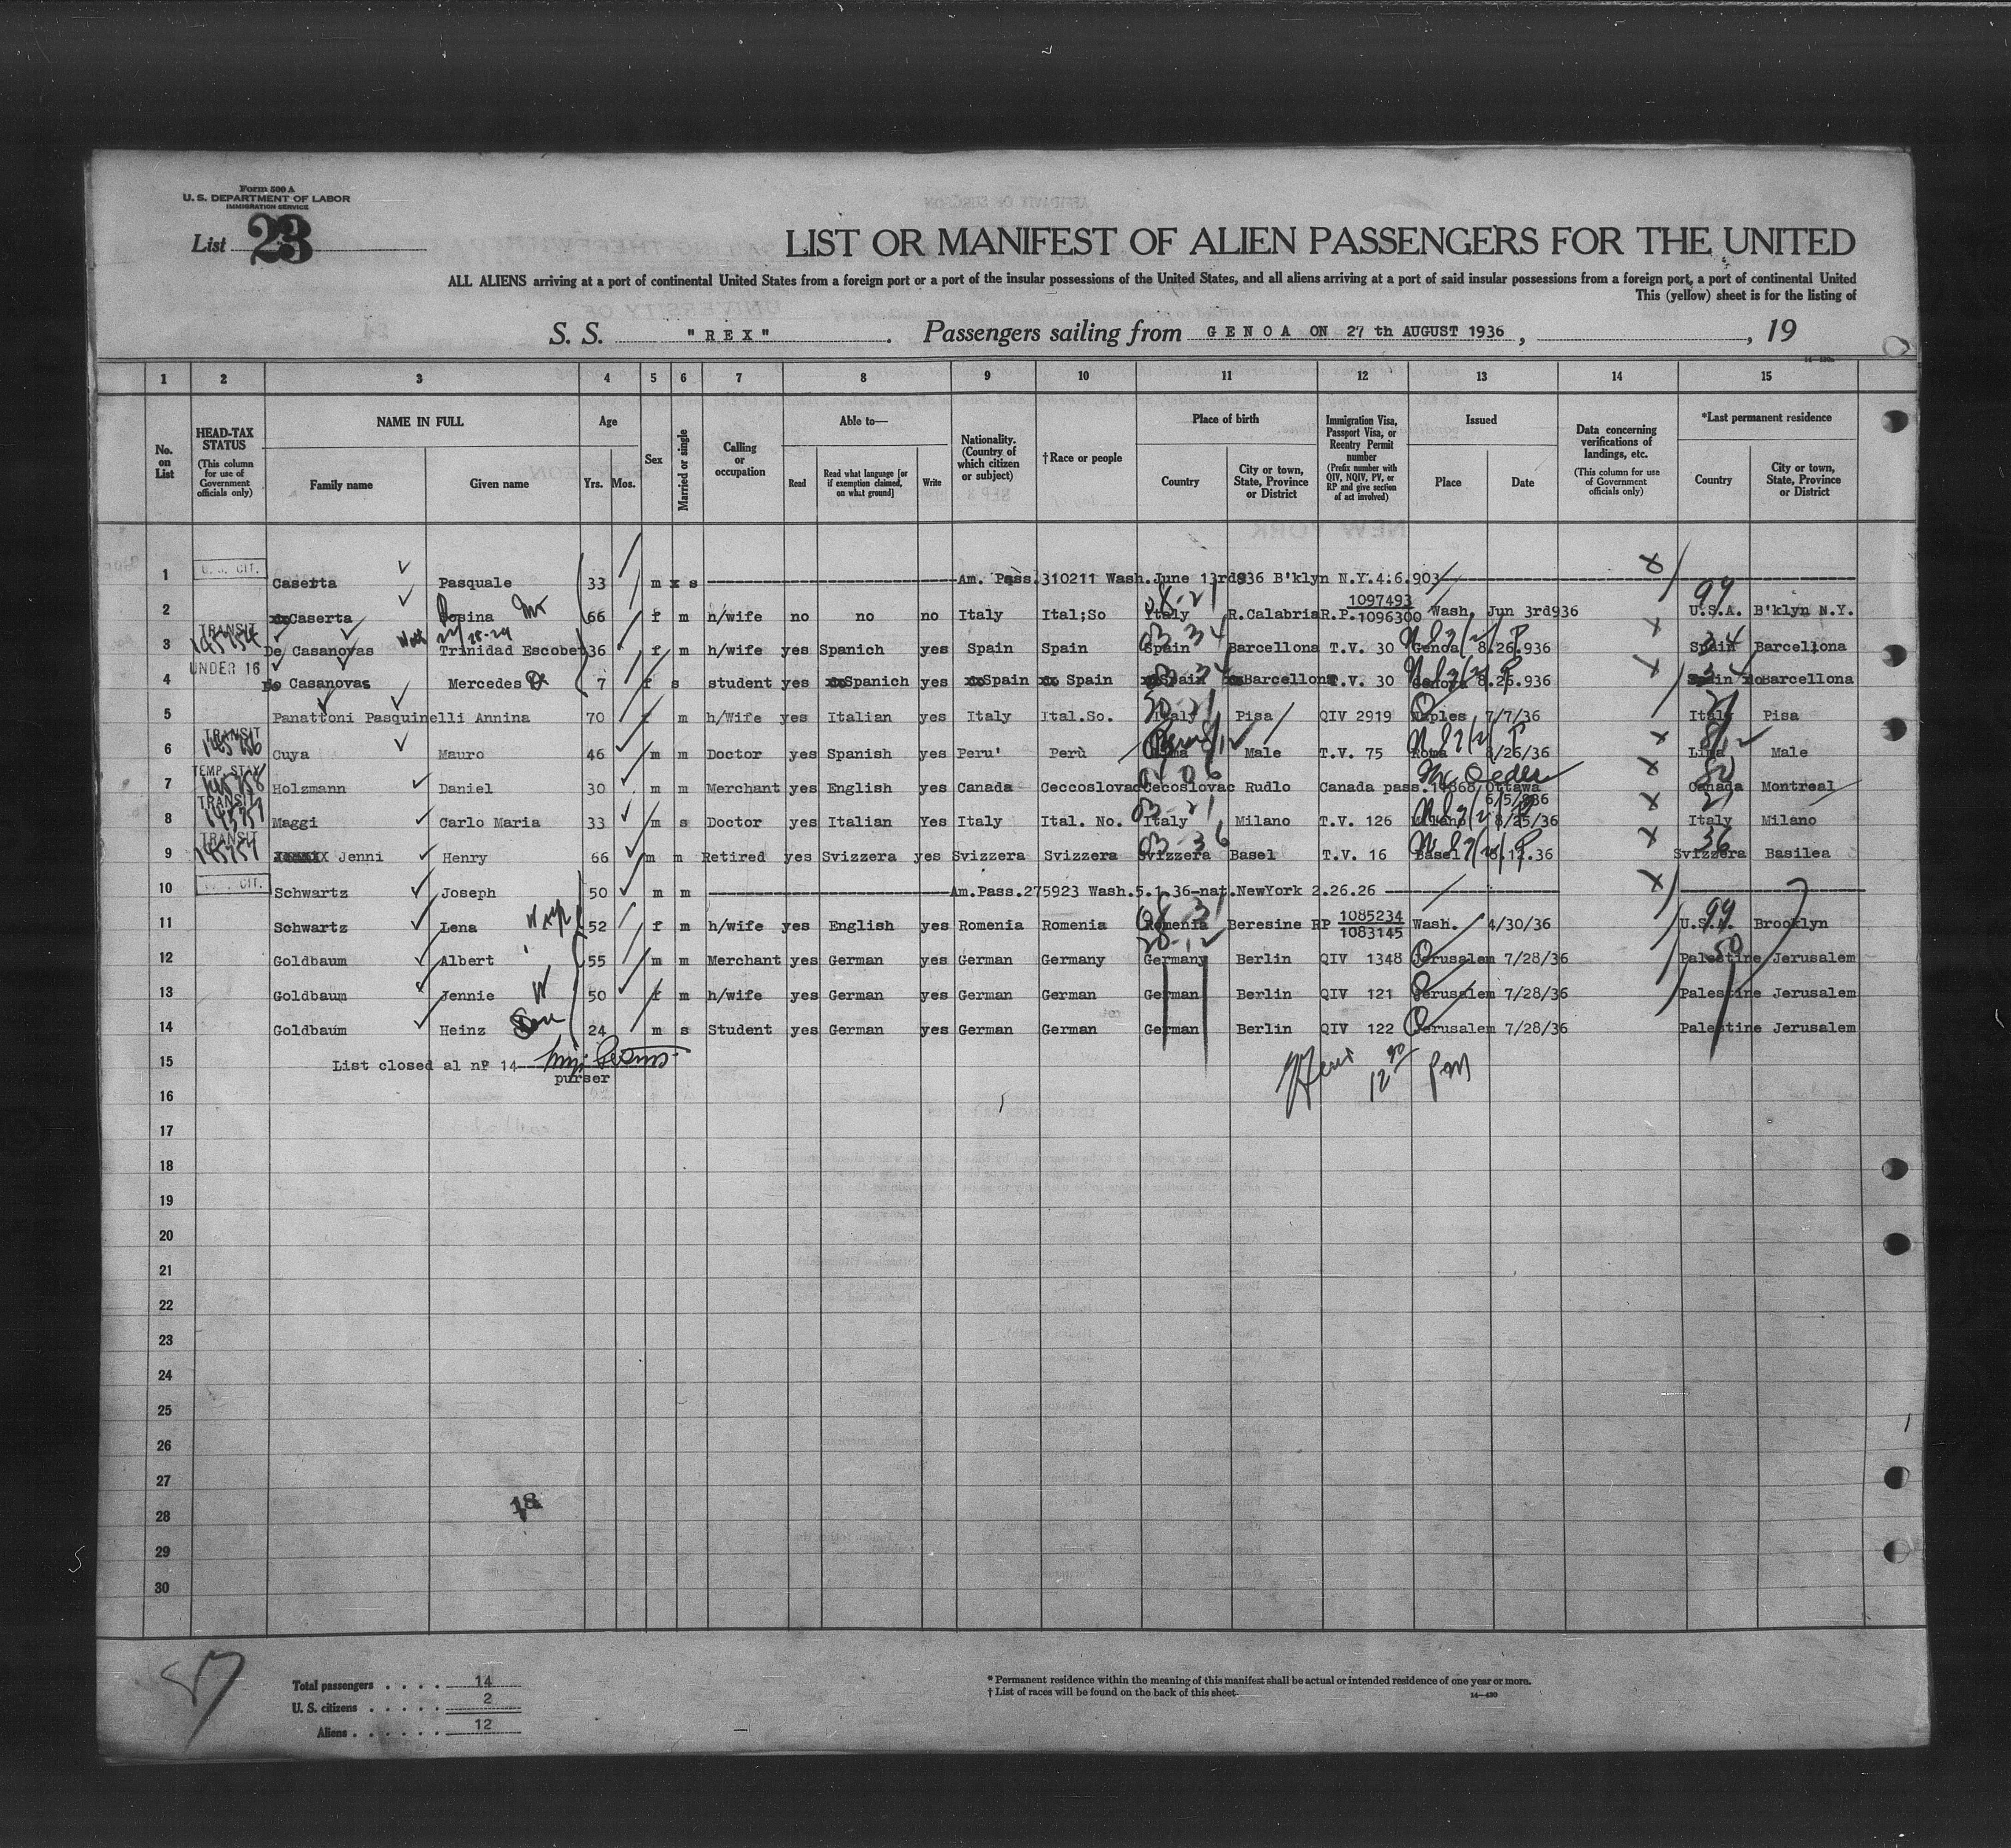 Form 500 A
U. S. DEPARTMENT OF LABOR
IMMIGRATION SERVICE
List 23
LIST OR MANIFEST OF ALIEN PASSENGERS FOR THE UNITED
ALL ALIENS arriving at a port of continental United States from a foreign port or a port of the insular possessions of the United States, and all aliens arriving at a port of said insular possessions from a foreign port, a port of continental United
This (yellow) sheet is for the listing of
S. S. "REX". Passengers sailing from GENOA ON 27 th AUGUST 1936, , 19
1 2 3 4 5 6 7 8 9 10 11 12 13 14 15
No. on List
HEAD-TAX STATUS (This column for use of Government officials only)
NAME IN FULL
Family name Given name
Age
Yrs. Mos.
Sex
Married or single
Calling or occupation
Able to—
Read Read what language [or if exemption claimed, on what ground] Write
Nationality. (Country of which citizen or subject)
†Race or people
Place of birth
Country City or town, State, Province or District
Immigration Visa, Passport Visa, or Reentry Permit number (Prefix number with QIV, NQIV, PV, or RP and give section of act involved)
Issued
Place Date
Data concerning verifications of landings, etc. (This column for use of Government officials only)
*Last permanent residence
Country City or town, State, Province or District
1 U.S. CIT. Caserta Pasquale 33 m x s Am. Pass.310211 Wash.June 13rd936 B'klyn N.Y.4.6.903
2 Caserta Rosina 66 f m h/wife no no no Italy Ital;So Italy R.Calabria R.P. 1097493 1096300 Wash. Jun 3rd936 99 U.S.A. B'klyn N.Y.
3 TRANSIT De Casanovas Trinidad Escobet 36 f m h/wife yes Spanich yes Spain Spain Spain Barcellona T.V. 30 Genoa 8.26.936 Spain Barcellona
4 UNDER 16 De Casanovas Mercedes 7 f s student yes Spanich yes Spain Spain Spain Barcellona T.V. 30 Genova 8.26.936 Spain Barcellona
5 Panattoni Pasquinelli Annina 70 f m h/Wife yes Italian yes Italy Ital.So. Italy Pisa QIV 2919 Naples 7/7/36 Italy Pisa
6 TRANSIT Cuya Mauro 46 m m Doctor yes Spanish yes Peru' Perù Peru Male T.V. 75 Roma 8/26/36 Lima Male
7 TEMP. STAY Holzmann Daniel 30 m m Merchant yes English yes Canada Ceccoslovac Cecoslovac Rudlo Canada pass. Ottawa 6/5/936 Canada Montreal
8 TRANSIT Maggi Carlo Maria 33 m s Doctor yes Italian Yes Italy Ital. No. Italy Milano T.V. 126 Milano 8/25/36 Italy Milano
9 TRANSIT Jenni Henry 66 m m Retired yes Svizzera yes Svizzera Svizzera Svizzera Basel T.V. 16 Basel 36 Svizzera Basilea
10 U.S. CIT. Schwartz Joseph 50 m m Am.Pass.275923 Wash.5.1.36-nat.NewYork 2.26.26
11 Schwartz Lena 52 f m h/wife yes English yes Romenia Romenia Romenia Beresine RP 1085234 1083145 Wash. 4/30/36 99 U.S.A. Brooklyn
12 Goldbaum Albert 55 m m Merchant yes German yes German Germany Germany Berlin QIV 1348 Jerusalem 7/28/36 Palestine Jerusalem
13 Goldbaum Jennie W 50 f m h/wife yes German yes German German German Berlin QIV 121 Jerusalem 7/28/36 Palestine Jerusalem
14 Goldbaum Heinz Son 24 m s Student yes German yes German German German Berlin QIV 122 Jerusalem 7/28/36 Palestine Jerusalem
15 List closed al nº 14
purser
16
17
18
19
20
21
22
23
24
25
26
27
28 18
29
30
Total passengers . . . . 14
U. S. citizens . . . . . 2
Aliens . . . . . . 12
* Permanent residence within the meaning of this manifest shall be actual or intended residence of one year or more.
† List of races will be found on the back of this sheet.
14—430